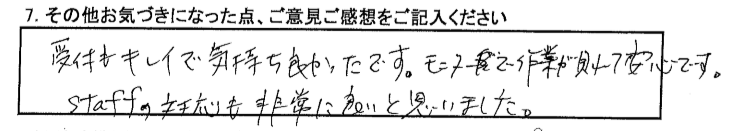 7. その他お気づきになった点、ご意見ご感想をご記入ください
受付もキレイで気持ち良かったです。モニターで作業が見れて安心です。
staffの対応も非常に良いと思いました。